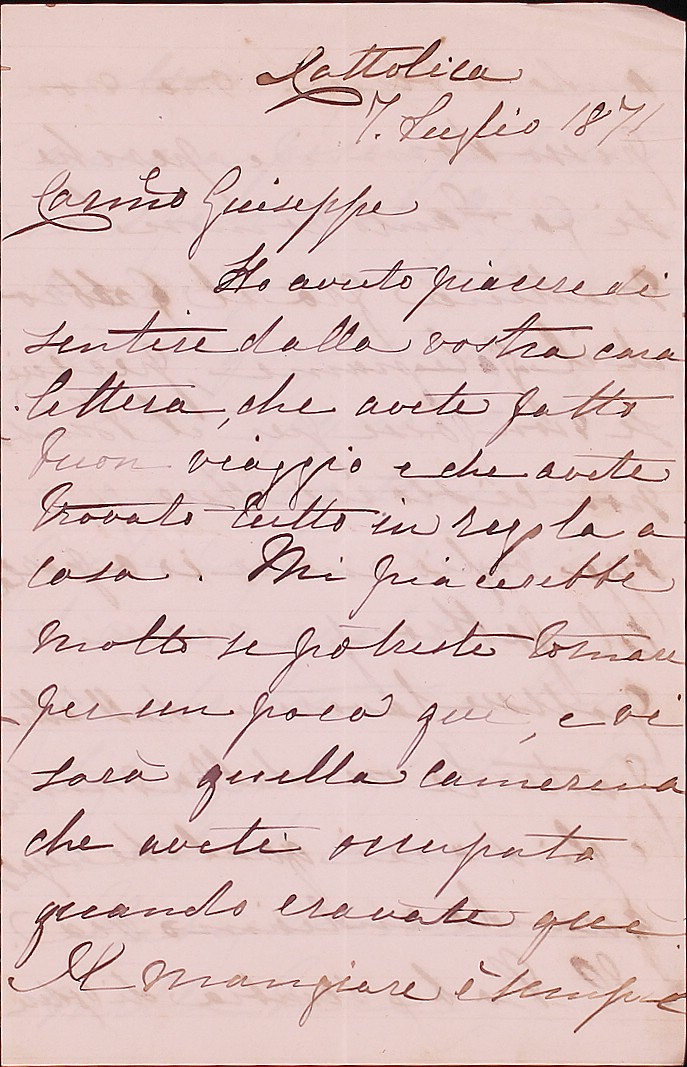 Cattolica
7. Luglio 1871
Carmo Giuseppe
Ho avuto piacere di
sentire dalla vostra cara
lettera, che avete fatto
buon viaggio e che avete
trovato tutto in regola a
casa. Mi piacerebbe
molto se potreste tornare
per un poco qui, e vi
sarà quella camerina
che avete occupato
quando eravate qui
Il mangiare è sempre